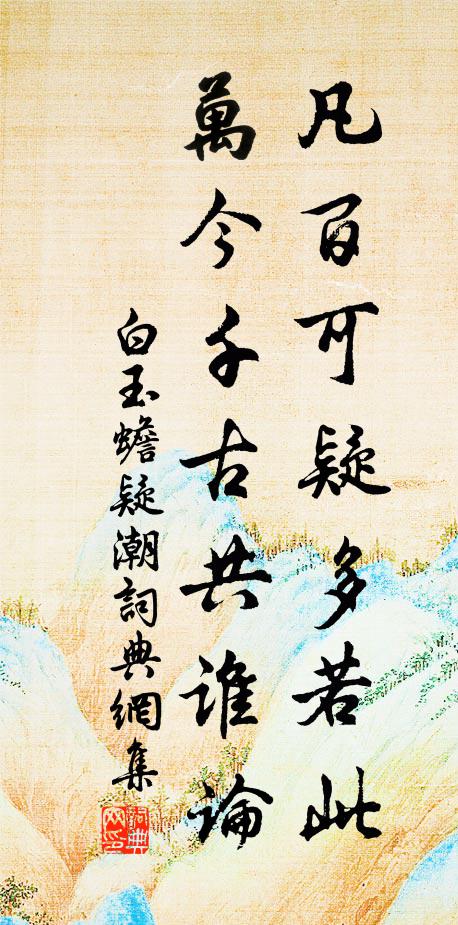 凡百可疑多若此
萬今千古共誰論
白玉蟾疑潮詞典網集
詞典網印